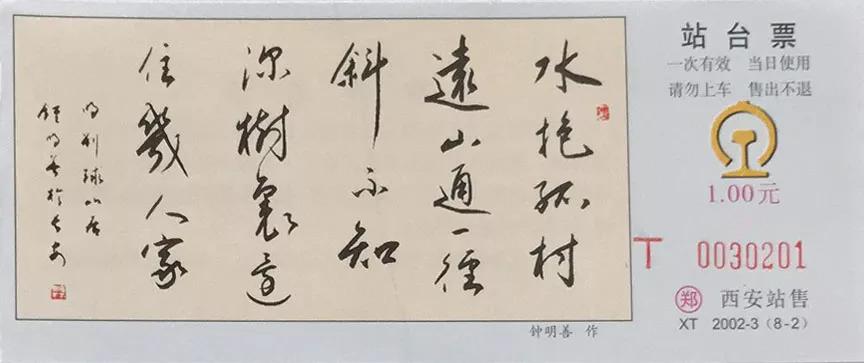 水抱孤村
遠山通一徑
斜不知
深樹裏還
住幾人家
明劉球山居
鍾明善於長安
钟明善 作
站台票
一次有效 当日使用
请勿上车 售出不退
1.00元
T 0030201
郑 西安站售
XT 2002-3（8-2）